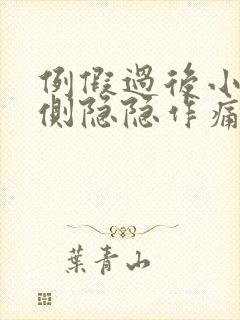 例假過後小
側隐隐作痛
葉青山